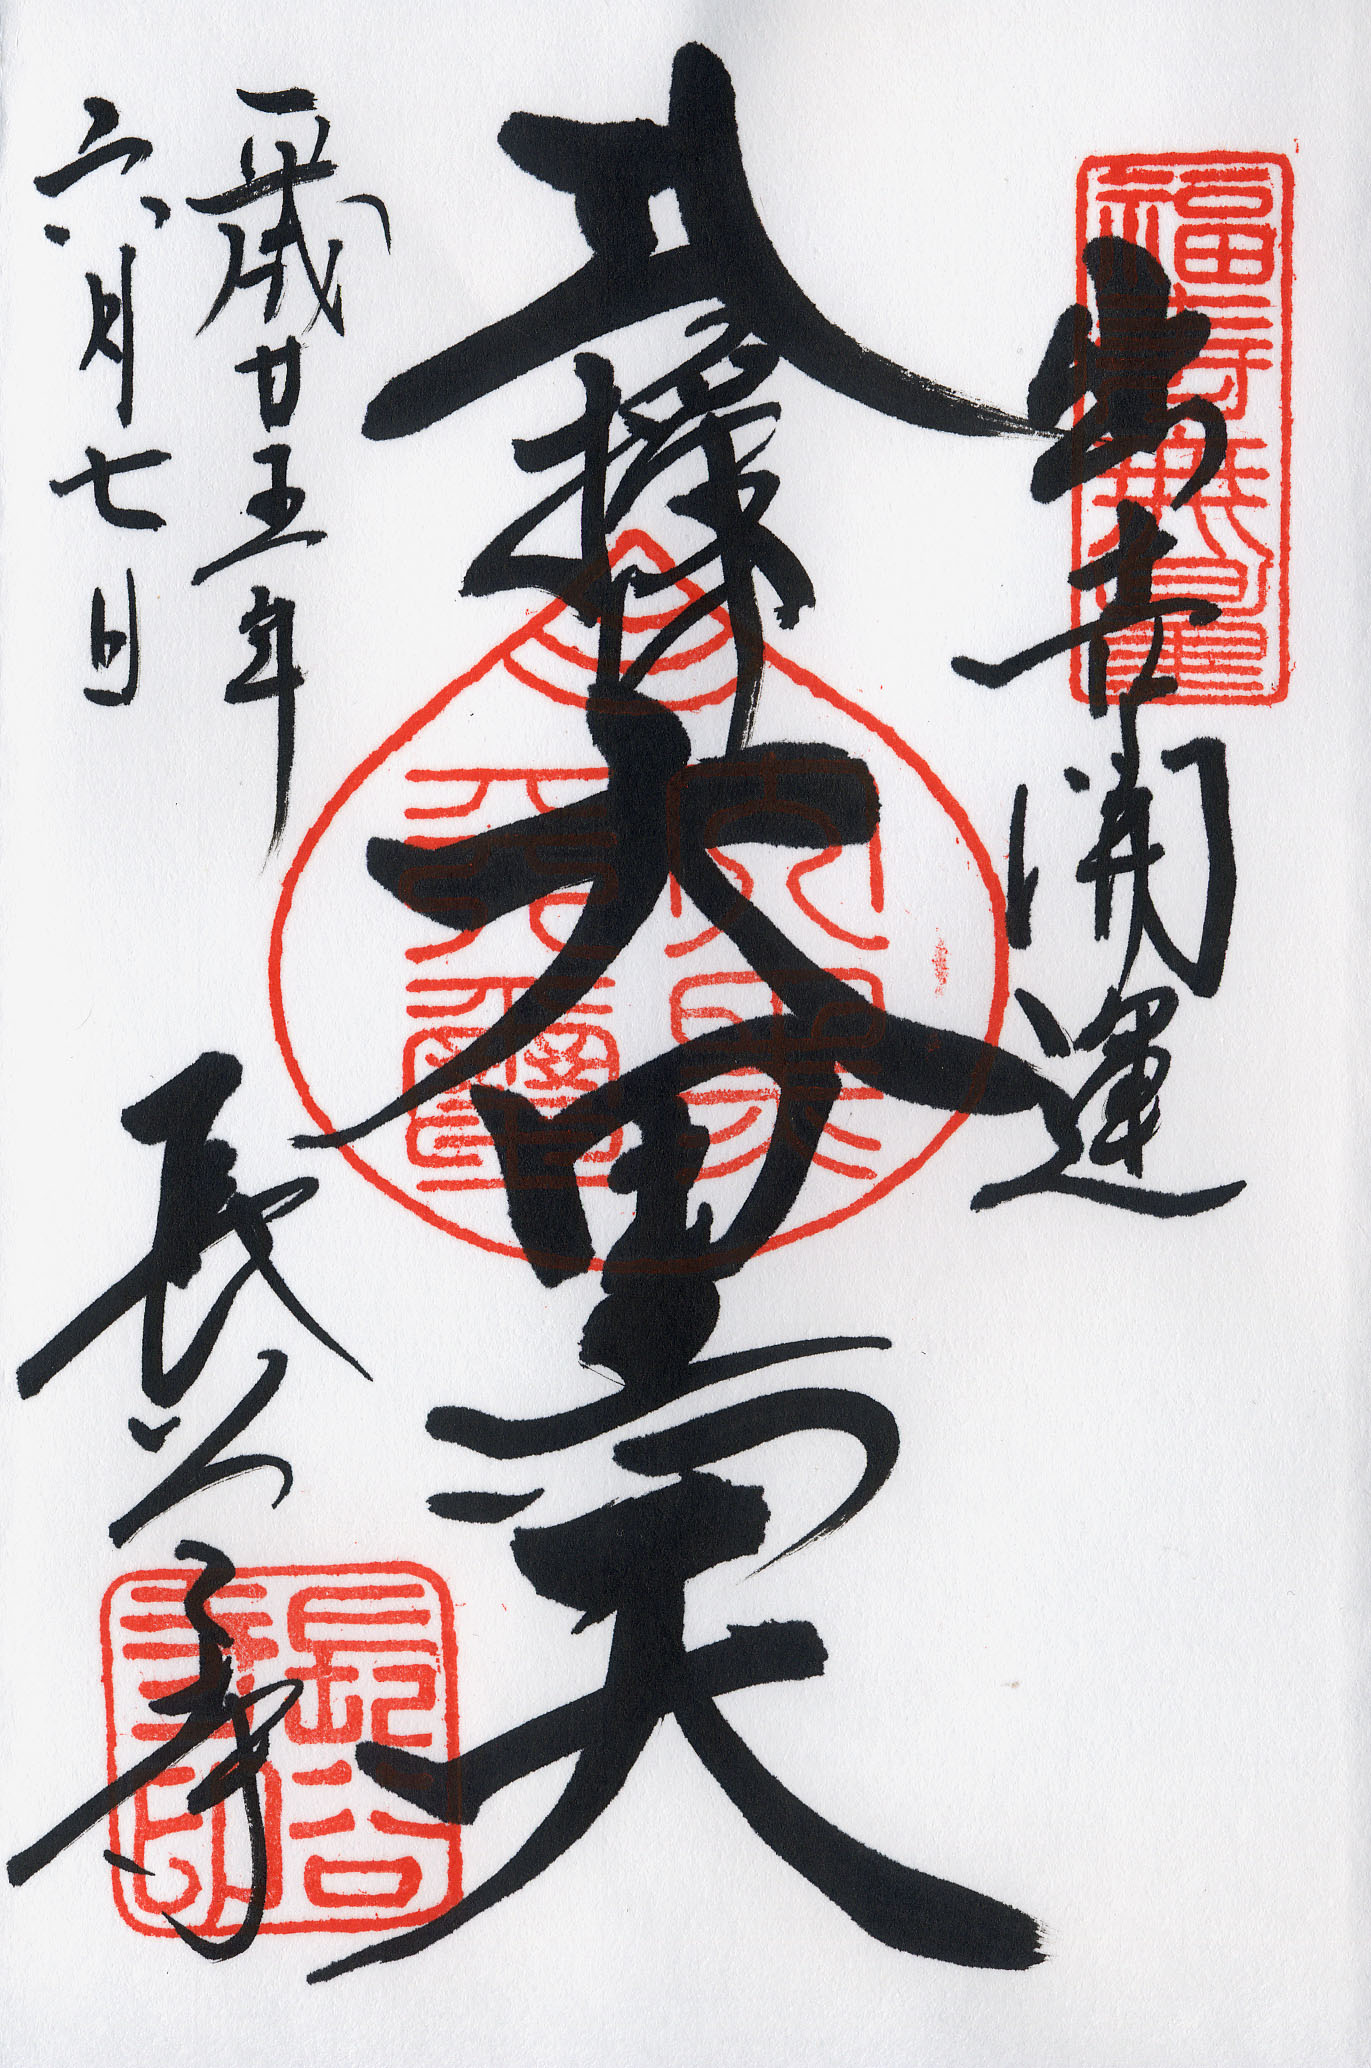 福壽無量
出世開運
大黒天
平成廿五年
六月七日
長谷寺
長谷寺印